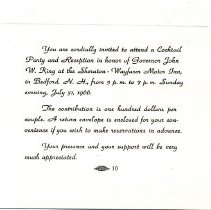 You are cordially invited to attend a Cocktail
Party and Reception in honor of Governor John
W. King at the Sheraton - Wayfarer Motor Inn,
in Bedford, N. H., from 5 p. m. to 7 p. m. Sunday
evening, July 31, 1966.
The contribution is one hundred dollars per
couple. A return envelope is enclosed for your con-
venience if you wish to make reservations in advance.
Your presence and your support will be very
much appreciated.
10